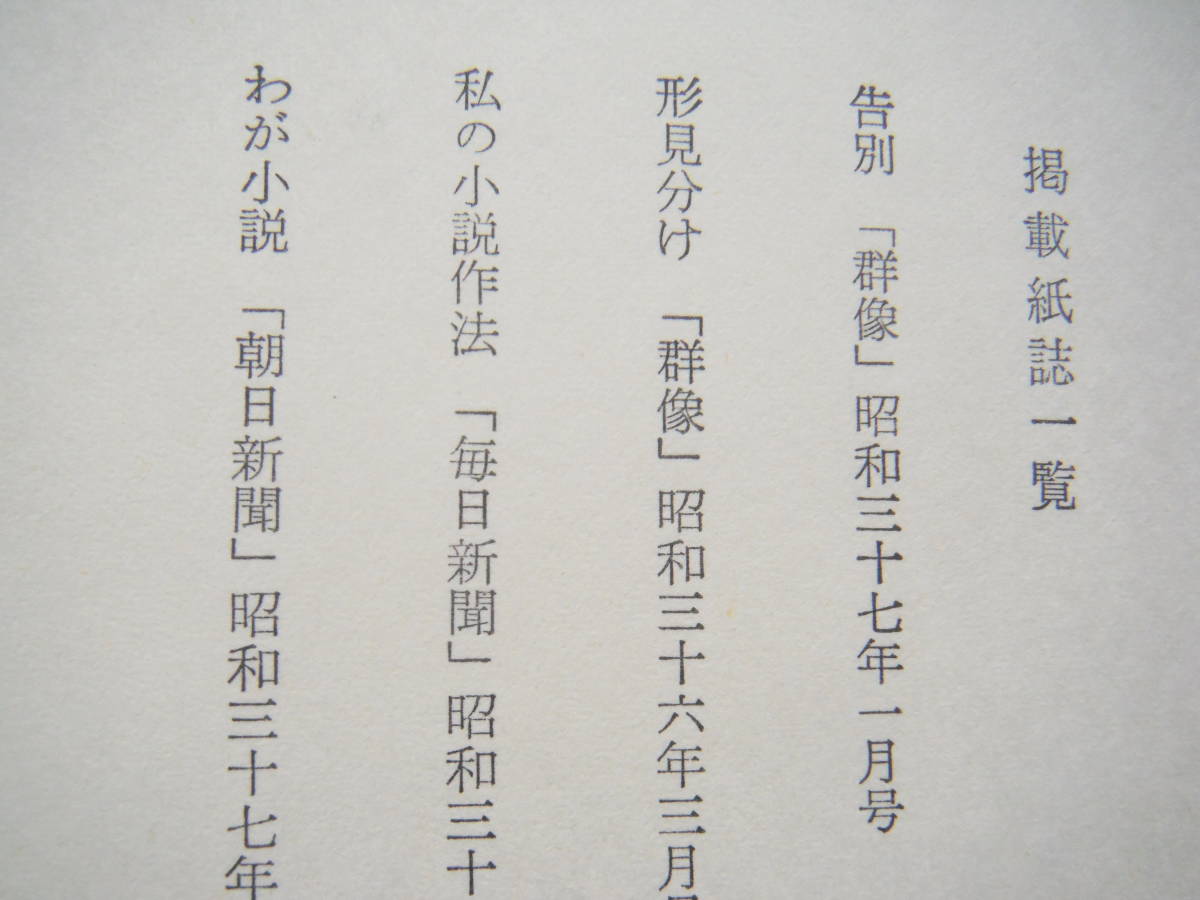 掲載紙誌一覧
告別　「群像」昭和三十七年一月号
形見分け　「群像」昭和三十六年三月
私の小説作法　「毎日新聞」昭和三十
わが小説　「朝日新聞」昭和三十七年